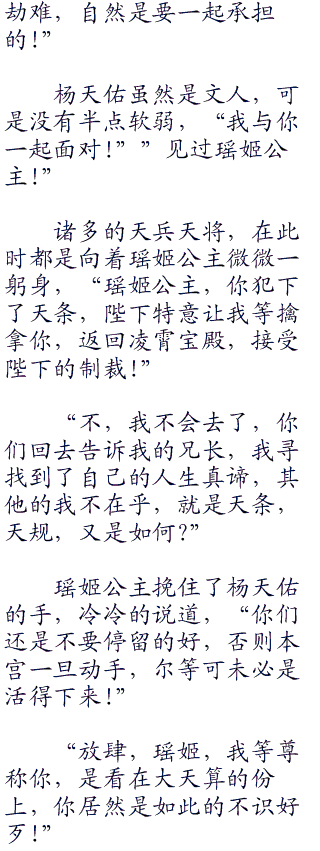 劫难，自然是要一起承担
的！”
杨天佑虽然是文人，可
是没有半点软弱，“我与你
一起面对！””见过瑶姬公
主！”
诸多的天兵天将，在此
时都是向着瑶姬公主微微一
躬身，“瑶姬公主，你犯下
了天条，陛下特意让我等擒
拿你，返回凌霄宝殿，接受
陛下的制裁！”
“不，我不会去了，你
们回去告诉我的兄长，我寻
找到了自己的人生真谛，其
他的我不在乎，就是天条，
天规，又是如何？”
瑶姬公主挽住了杨天佑
的手，冷冷的说道，“你们
还是不要停留的好，否则本
宫一旦动手，尔等可未必是
活得下来！”
“放肆，瑶姬，我等尊
称你，是看在大天算的份
上，你居然是如此的不识好
歹！”